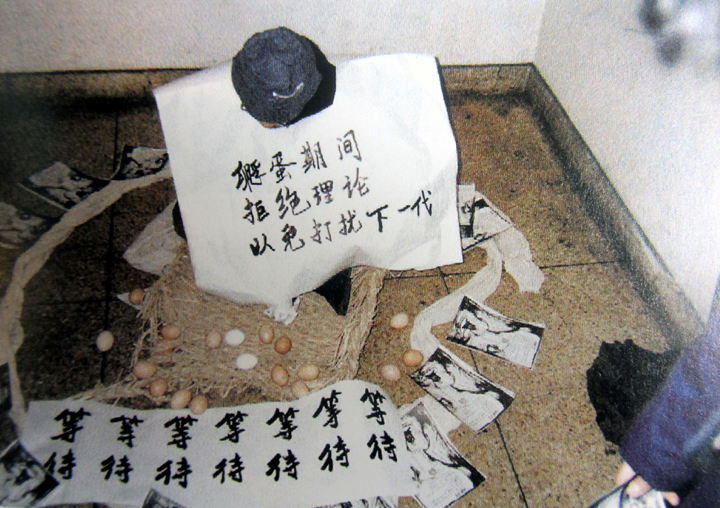 孵蛋期间
拒绝理论
以免打扰下一代
等待
等待
等待
等待
等待
等待
等待